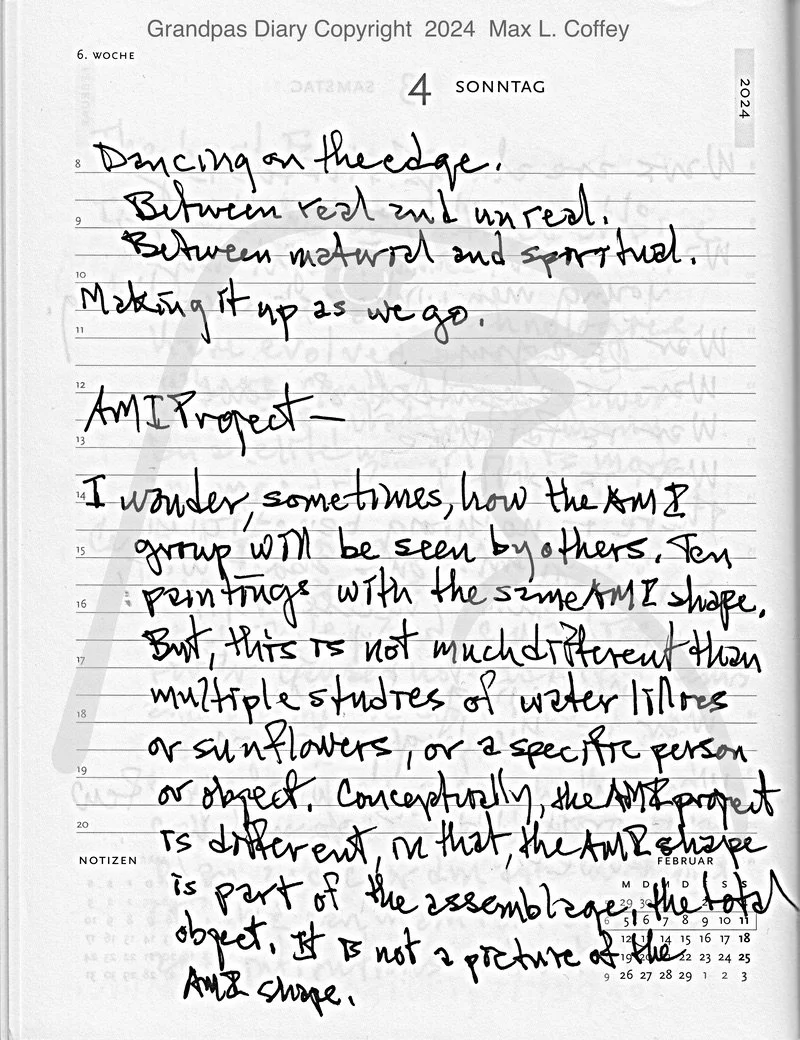 Grandpas Diary Copyright 2024 Max L. Coffey
6. WOCHE
4 SONNTAG
2024
8 Dancing on the edge.
Between real and unreal.
9
Between material and spiritual.
10
Making it up as we go.
11
12
AMI Project —
13
14 I wonder, sometimes, how the AMI
15 group will be seen by others. Ten
16 paintings with the same AMI shape.
But, this is not much different than
17
multiple studies of water lillies
18
or sunflowers, or a specific person
19
or object. Conceptually, the AMI project
20
is different, in that, the AMI shape
NOTIZEN
FEBRUAR
is part of the assemblage, the total
object. It is not a picture of the
AMI shape.
M D M D F S S
29 30
6 5 6 7 8 9 10 11
12 14 15 16 17 18
19 22 23 24 25
9 26 27 28 29 1 2 3